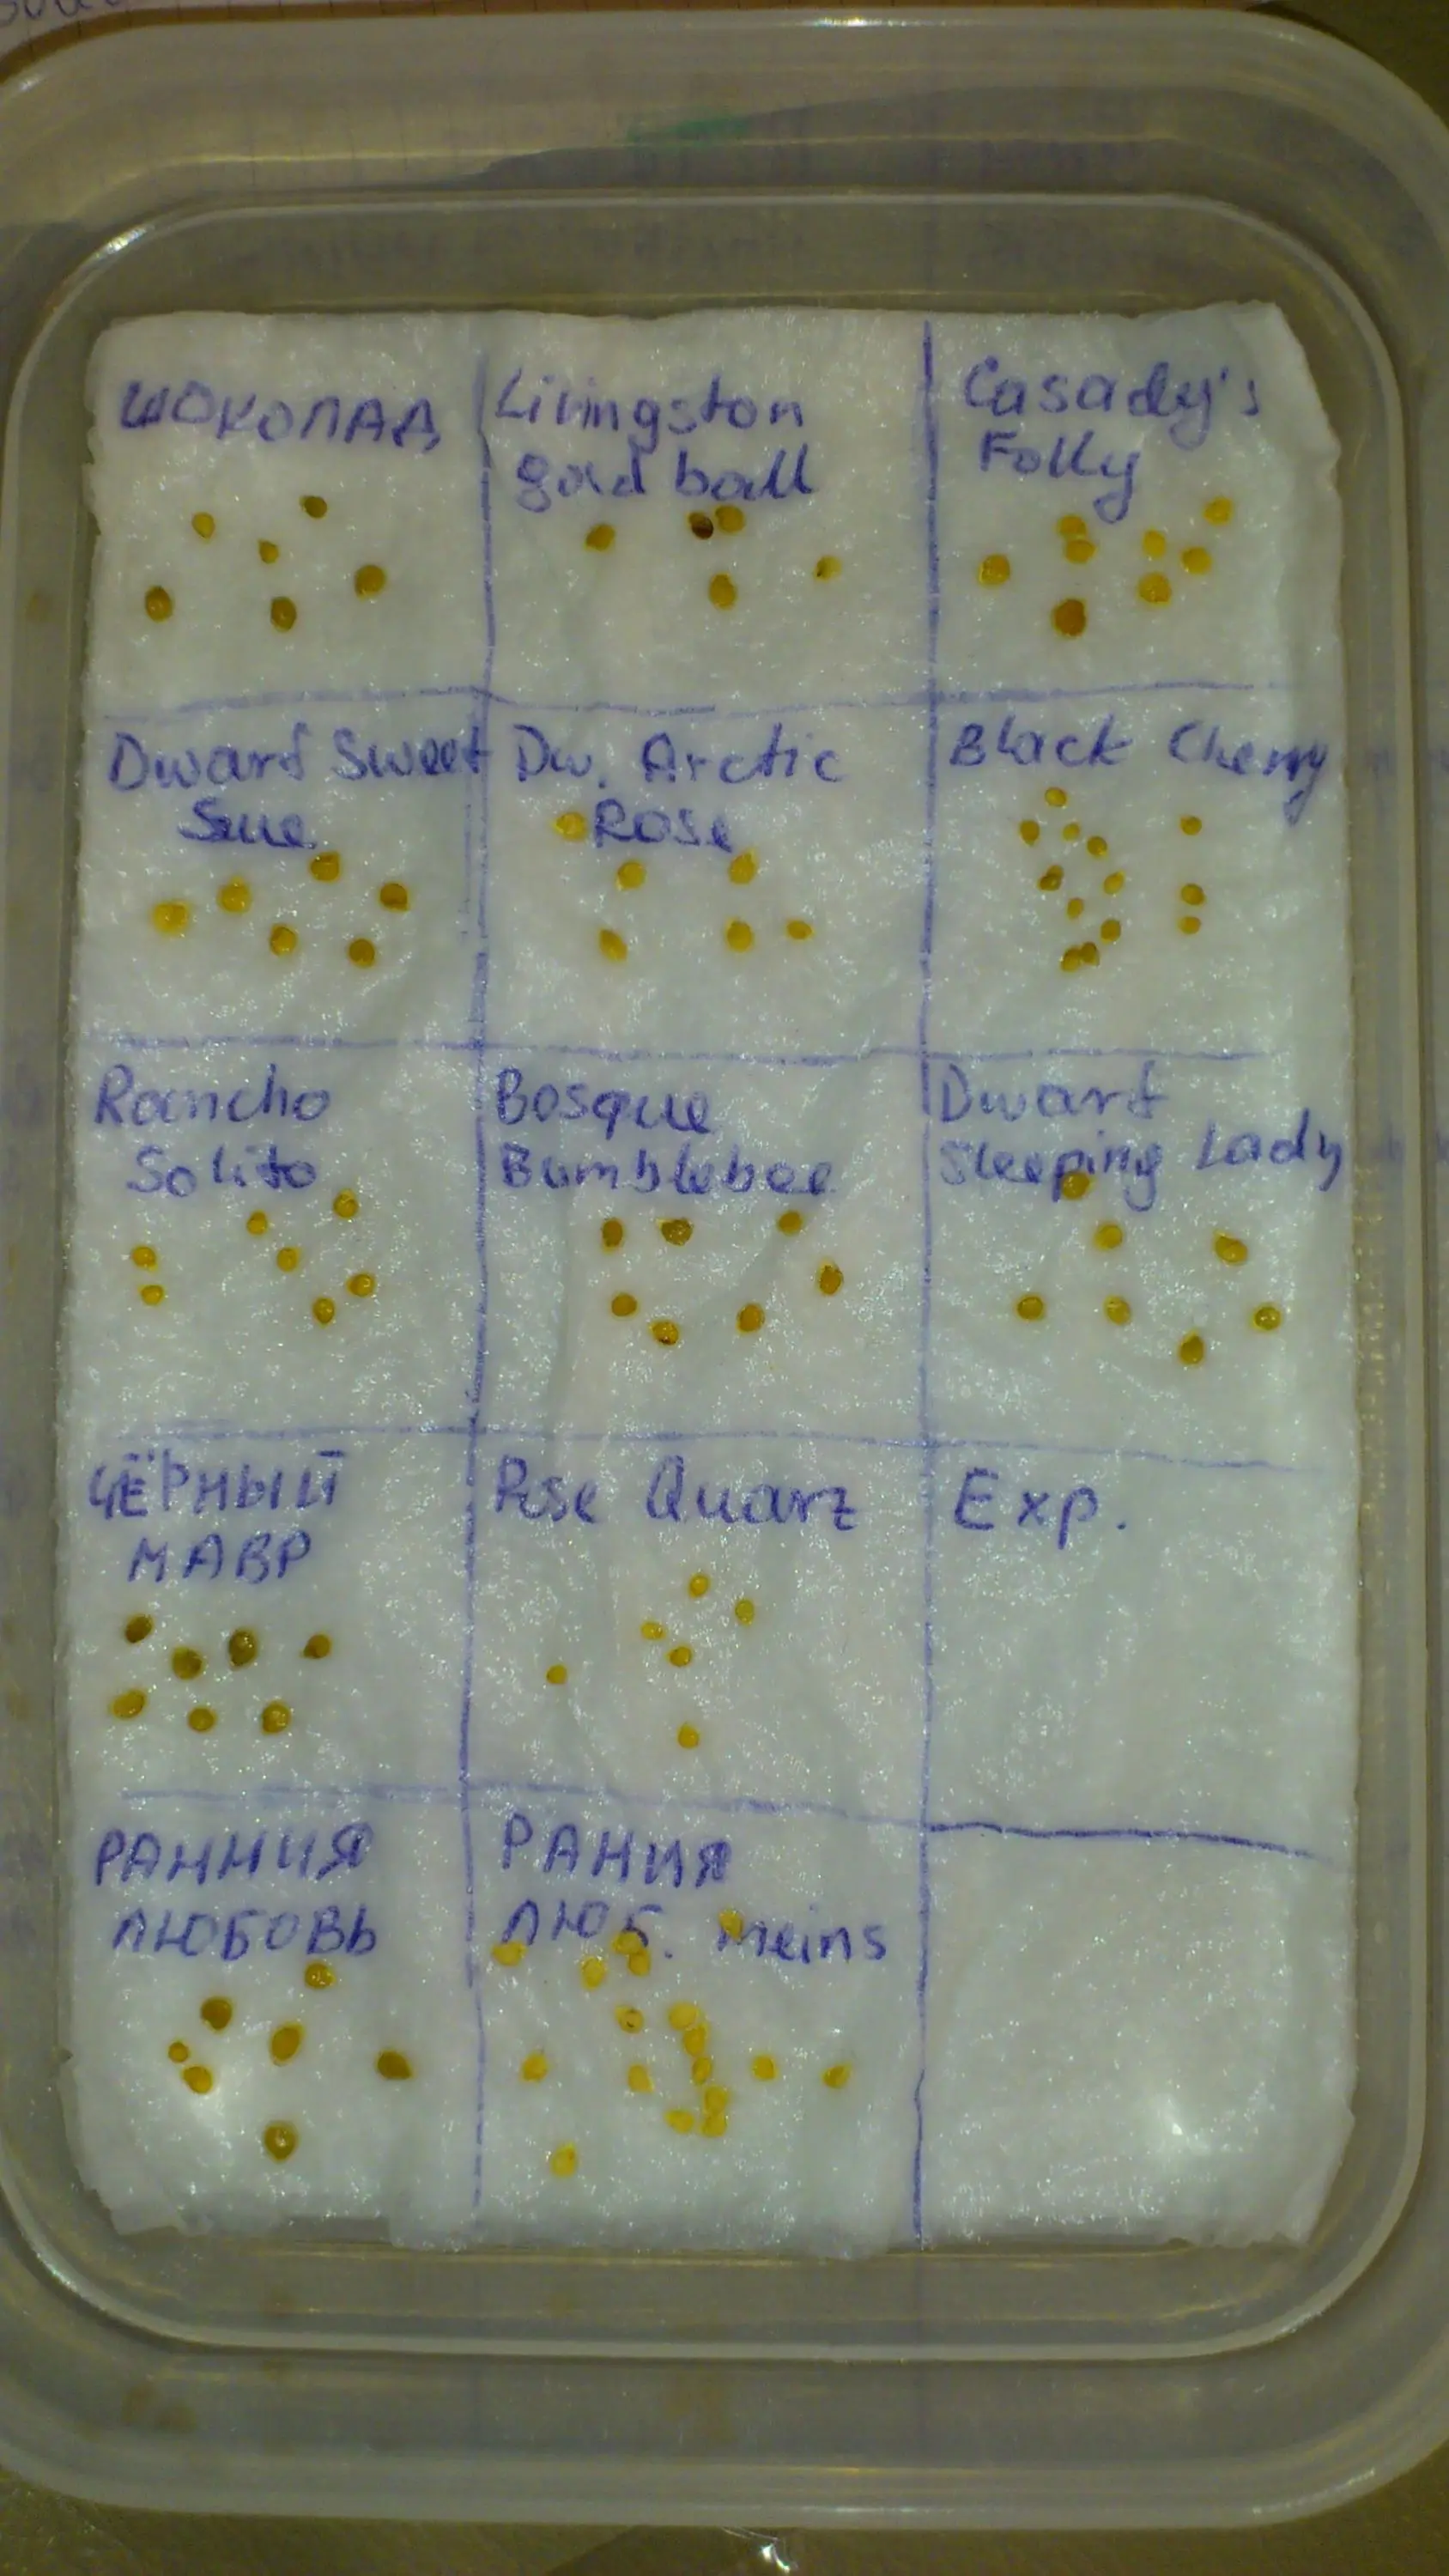 ШОКОЛАД
Livingston
gold ball
Casady's
Folly
Dwarf Sweet
Sue
Dw. Arctic
Rose
Black Cherry
Rancho
Solito
Bosque
Bumblebee
Dwarf
Sleeping Lady
ЧЁРНЫЙ
МАВР
Rose Quarz
Exp.
РАННИЯ
ЛЮБОВЬ
РАНИЯ
ЛЮБ. meins